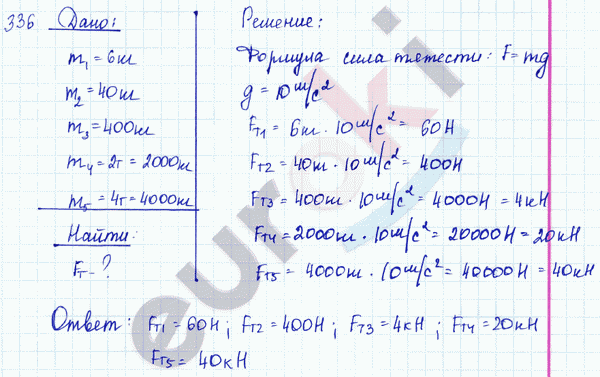 336 Дано:
m₁ = 6кг
m₂ = 40кг
m₃ = 400кг
m₄ = 2т = 2000кг
m₅ = 4т = 4000кг
Найти:
Fт - ?
Решение:
Формула сила тяжести: F = mg
g = 10 м/с²
Fт1 = 6кг · 10 м/с² = 60Н
Fт2 = 40кг · 10 м/с² = 400Н
Fт3 = 400кг · 10 м/с² = 4000Н = 4кН
Fт4 = 2000кг · 10 м/с² = 20000Н = 20кН
Fт5 = 4000кг · 10 м/с² = 40000Н = 40кН
Ответ: Fт1 = 60Н; Fт2 = 400Н; Fт3 = 4кН; Fт4 = 20кН
Fт5 = 40кН
euroki